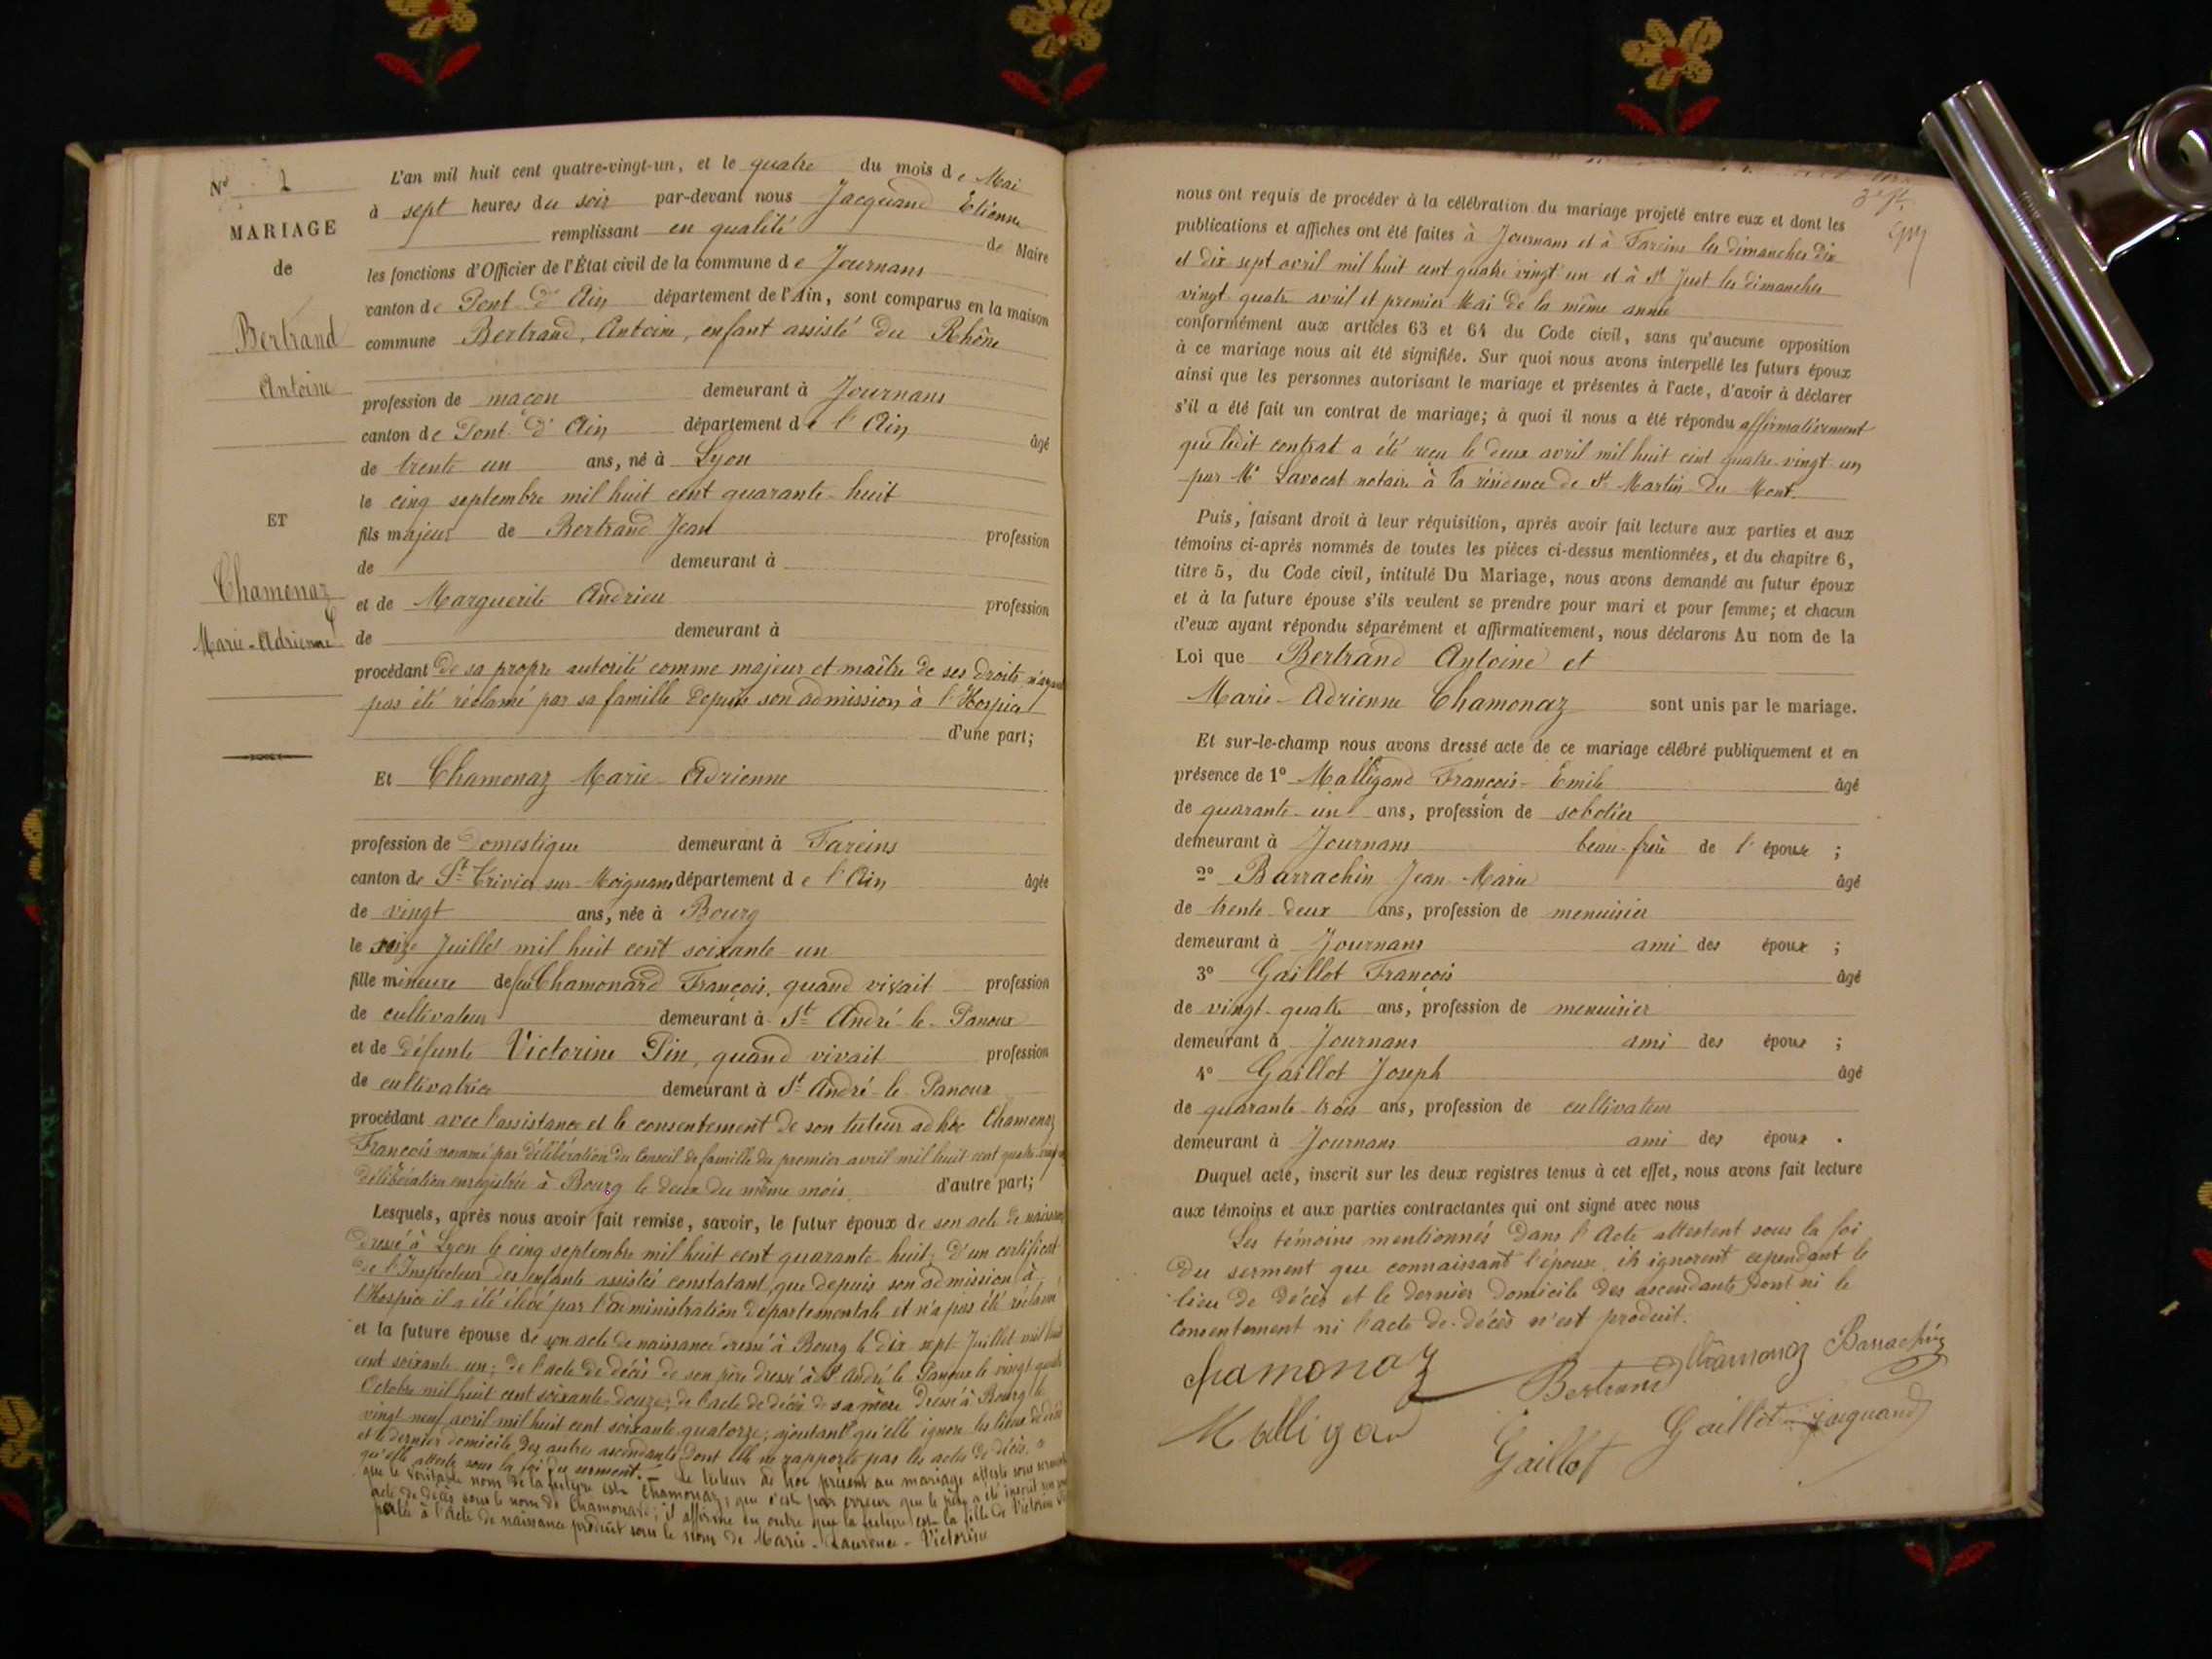 N° 1
MARIAGE
de
Bertrand
Antoine
ET
Chamonaz
Marie-Adrienne
L'an mil huit cent quatre-vingt-un, et le quatre du mois de Mai
à sept heures du soir par-devant nous Jacquand Etienne
remplissant en qualité de Maire
les fonctions d'Officier de l'État civil de la commune de Journans
canton de Pont d'Ain département de l'Ain, sont comparus en la maison
commune Bertrand, Antoine, enfant assisté du Rhône
profession de maçon demeurant à Journans
canton de Pont d'Ain département de l'Ain âgé
de trente un ans, né à Lyon
le cinq septembre mil huit cent quarante-huit
fils majeur de Bertrand Jean profession
de demeurant à
et de Marguerite Andrieu profession
de demeurant à
procédant de sa propre autorité comme majeur et maître de ses droits n'ayant
pas été réclamé par sa famille depuis son admission à l'Hospice
d'une part;
Et Chamonaz Marie-Adrienne
profession de Domestique demeurant à Fareins
canton de St Trivier sur-Moignans département de l'Ain âgée
de vingt ans, née à Bourg
le seize Juillet mil huit cent soixante-un
fille mineure de feu Chamonard François, quand vivait profession
de cultivateur demeurant à St André-le-Panoux
et de défunte Victorine Pin, quand vivait profession
de cultivatrice demeurant à St André-le-Panoux
procédant avec l'assistance et le consentement de son tuteur ad hoc Chamonaz
François nommé par délibération du Conseil de famille du premier avril mil huit cent quatre-vingt-un
délibération enregistrée à Bourg le deux du même mois. d'autre part;
Lesquels, après nous avoir fait remise, savoir, le futur époux de son acte de naissance
dressé à Lyon le cinq septembre mil huit cent quarante-huit; d'un certificat
de l'Inspecteur des enfants assistés constatant que depuis son admission à
l'Hospice il a été élevé par l'administration départementale et n'a pas été réclamé
et la future épouse de son acte de naissance dressé à Bourg le dix sept Juillet mil huit
cent soixante-un; de l'acte de décès de son père dressé à St André-le-Panoux le vingt quatre
Octobre mil huit cent soixante-douze; de l'acte de décès de sa mère dressé à Bourg le
vingt neuf avril mil huit cent soixante quatorze; ajoutant qu'elle ignore les lieux de décès
et le dernier domicile des autres ascendants dont elle ne rapporte pas les actes de décès, ce
qu'elle atteste sous la foi du serment. - Le tuteur ad hoc présent au mariage atteste sous serment
que le véritable nom de la future est Chamonaz, que c'est par erreur que le père a été inscrit
acte de décès sous le nom de Chamonard; il affirme en outre que la future est la fille de Victorine Pin
portée à l'acte de naissance produit sous le nom de Marie-Laurence-Victorine
nous ont requis de procéder à la célébration du mariage projeté entre eux et dont les
publications et affiches ont été faites à Journans et à Fareins les dimanches dix
et dix sept avril mil huit cent quatre vingt un et à St Just les dimanches
vingt quatre avril et premier Mai de la même année
conformément aux articles 63 et 64 du Code civil, sans qu'aucune opposition
à ce mariage nous ait été signifiée. Sur quoi nous avons interpellé les futurs époux
ainsi que les personnes autorisant le mariage et présentes à l'acte, d'avoir à déclarer
s'il a été fait un contrat de mariage; à quoi il nous a été répondu affirmativement
que ledit contrat a été reçu le deux avril mil huit cent quatre-vingt-un
par Me Lavocat notaire à la résidence de St Martin du Mont.
Puis, faisant droit à leur réquisition, après avoir fait lecture aux parties et aux
témoins ci-après nommés de toutes les pièces ci-dessus mentionnées, et du chapitre 6,
titre 5, du Code civil, intitulé Du Mariage, nous avons demandé au futur époux
et à la future épouse s'ils veulent se prendre pour mari et pour femme; et chacun
d'eux ayant répondu séparément et affirmativement, nous déclarons Au nom de la
Loi que Bertrand Antoine et
Marie-Adrienne Chamonaz sont unis par le mariage.
Et sur-le-champ nous avons dressé acte de ce mariage célébré publiquement et en
présence de 1° Malligand François-Emile âgé
de quarante-un ans, profession de sabotier
demeurant à Journans beau-frère de l'épouse ;
2° Barrachin Jean-Marie âgé
de trente-deux ans, profession de menuisier
demeurant à Journans ami des époux ;
3° Gaillot François âgé
de vingt-quatre ans, profession de menuisier
demeurant à Journans ami des époux ;
4° Gaillot Joseph âgé
de quarante-trois ans, profession de cultivateur
demeurant à Journans ami des époux .
Duquel acte, inscrit sur les deux registres tenus à cet effet, nous avons fait lecture
aux témoins et aux parties contractantes qui ont signé avec nous
Les témoins mentionnés dans l'Acte attestent sous la foi
du serment que connaissant l'épouse, ils ignorent cependant le
lieu de décès et le dernier domicile des ascendants dont ni le
consentement ni l'acte de décès n'est produit.
chamonaz Bertrand Chamonaz Barrachin
Malligand Gaillot Gaillot Jacquand